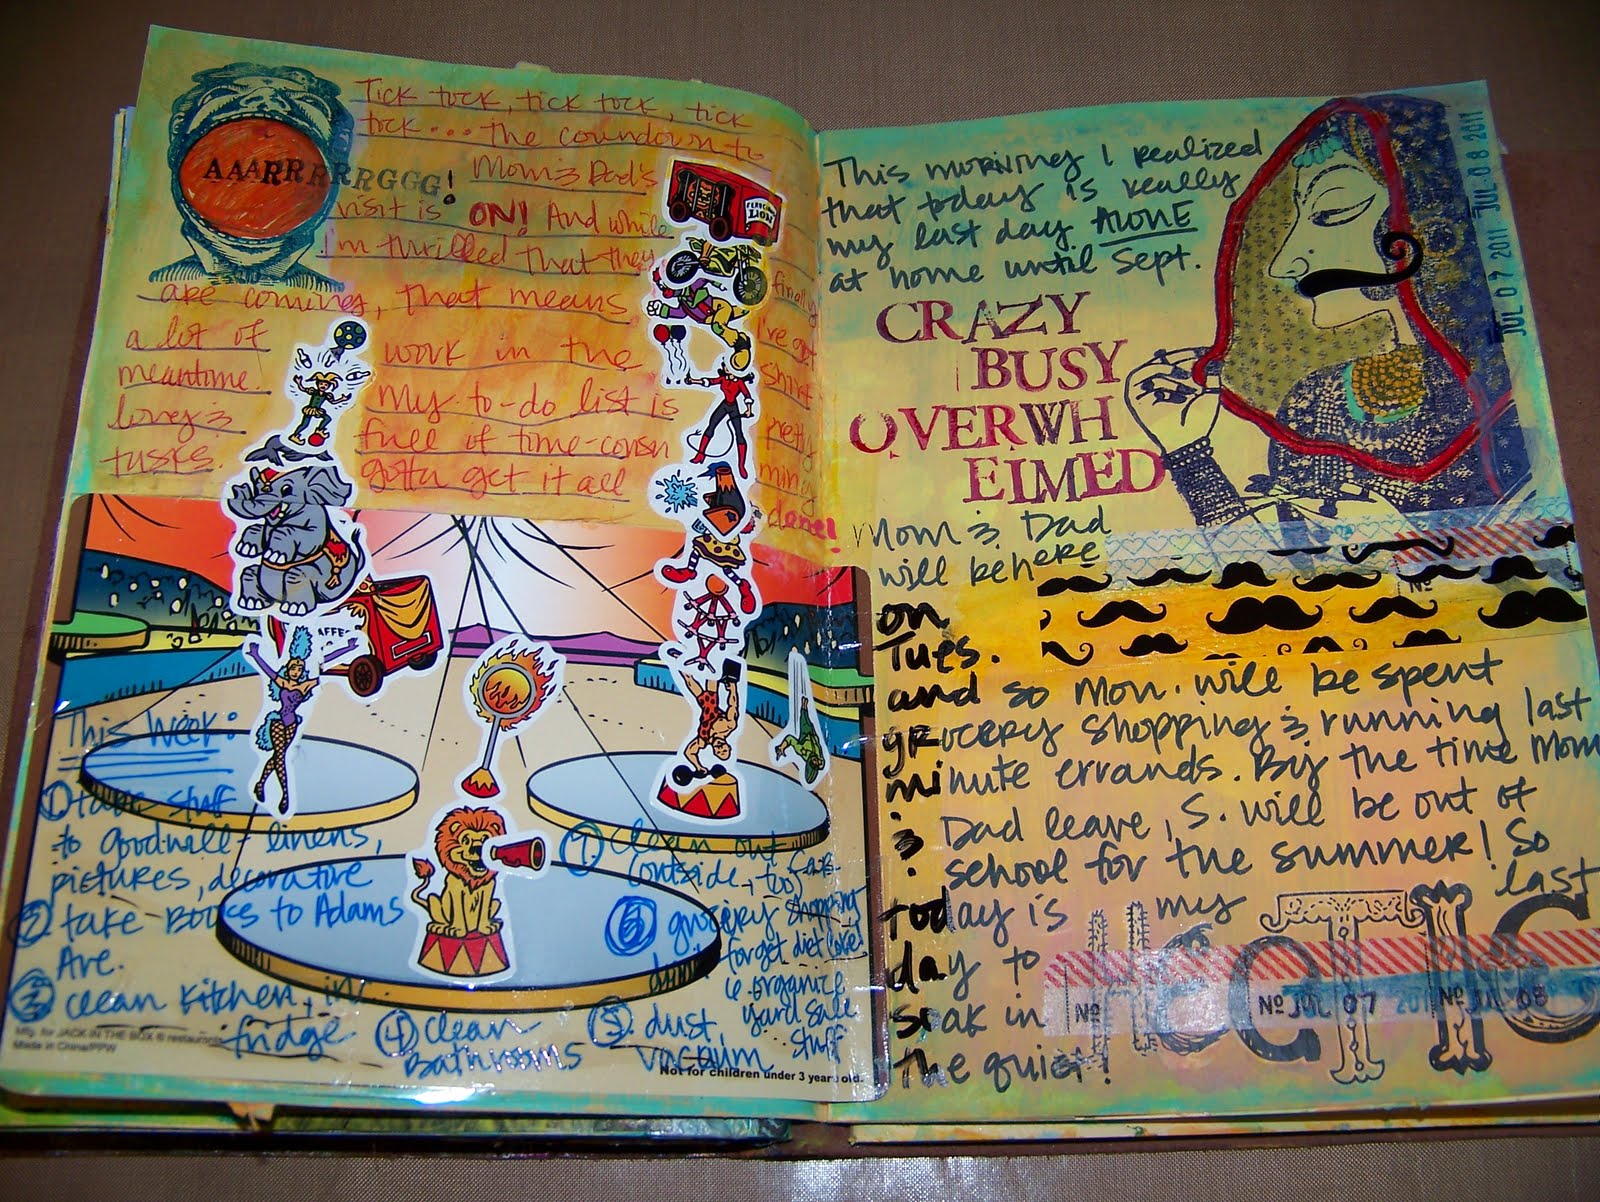 AAARRRRRRGGG!
Tick tock, tick tock, tick
tock... the countdown to
Mom & Dad's
visit is ON! And while
I'm thrilled that they
are coming, that means
a lot of work in the
meantime. My to-do list is
full of time-consu
gotta get it all
finally
I've got
pretty
done!
FEROCIOUS
LION
This Week:
① take stuff
to goodwill - linens,
pictures, decorative
② take books to Adams
Ave.
③ clean kitchen, inc.
fridge
④ clean
Bathrooms
⑤ dust,
vacuum
⑥ grocery shopping
forget diet coke!
⑦ clean out
outside, too,
i.e. organize
yard sale
stuff
Mfg. for JACK IN THE BOX ® restaurants
Made in China/PPW
Not for children under 3 years old.
This morning I realized
that today is really
my last day ALONE
at home until Sept.
CRAZY
BUSY
OVERWH
ELMED
Mom & Dad
will be here
on
Tues.
and so Mon. will be spent
grocery shopping & running last
minute errands. By the time Mom
& Dad leave, S. will be out of
school for the summer! So
today is my last
day to
soak in
the quiet!
HECTIC
JUL 07 2011 JUL 08 2011
Nº
Nº
Nº JUL 07 201 Nº JUL 08